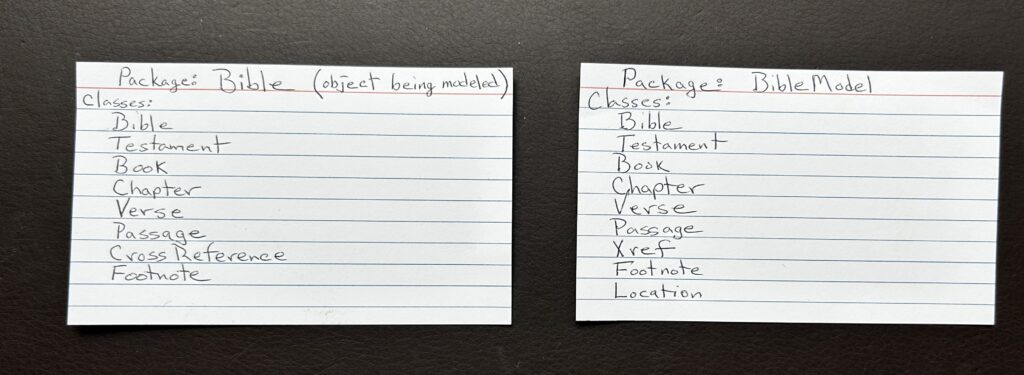 Package: Bible (object being modeled)
Classes:
Bible
Testament
Book
Chapter
Verse
Passage
Cross Reference
Footnote
Package: BibleModel
Classes:
Bible
Testament
Book
Chapter
Verse
Passage
Xref
Footnote
Location